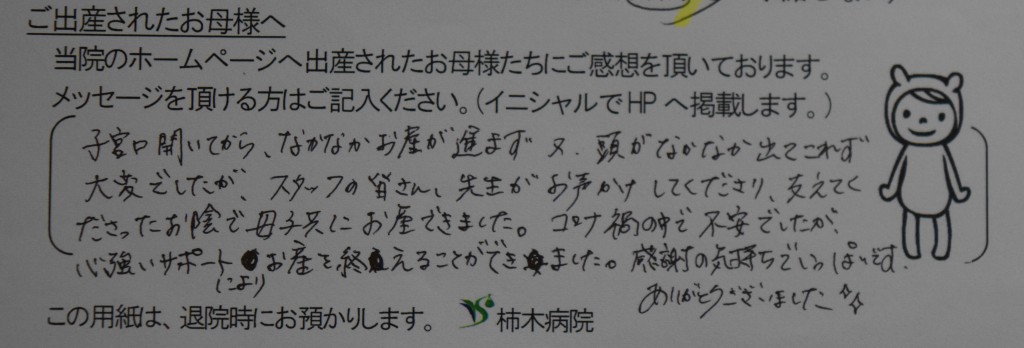 ご出産されたお母様へ
当院のホームページへ出産されたお母様たちにご感想を頂いております。
メッセージを頂ける方はご記入ください。(イニシャルでHPへ掲載します。)
子宮口開いてから、なかなかお産が進まず又、頭がなかなか出てこれず
大変でしたが、スタッフの皆さん、先生がお声かけしてくださり、支えてく
ださったお陰で母子共にお産できました。コロナ禍の中で不安でしたが、
心強いサポートによりお産を終えることができました。感謝の気持ちでいっぱいです。
ありがとうございました
この用紙は、退院時にお預かりします。 柿木病院